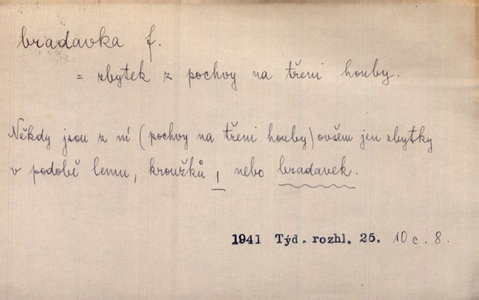 bradavka f.
= zbytek z pochvy na třeni houby.
Někdy jsou z ní (pochvy na třeni houby) ovšem jen zbytky
v podobě lemu, kroužků, nebo bradavek.
1941 Týd. rozhl. 25. 10 c. 8.